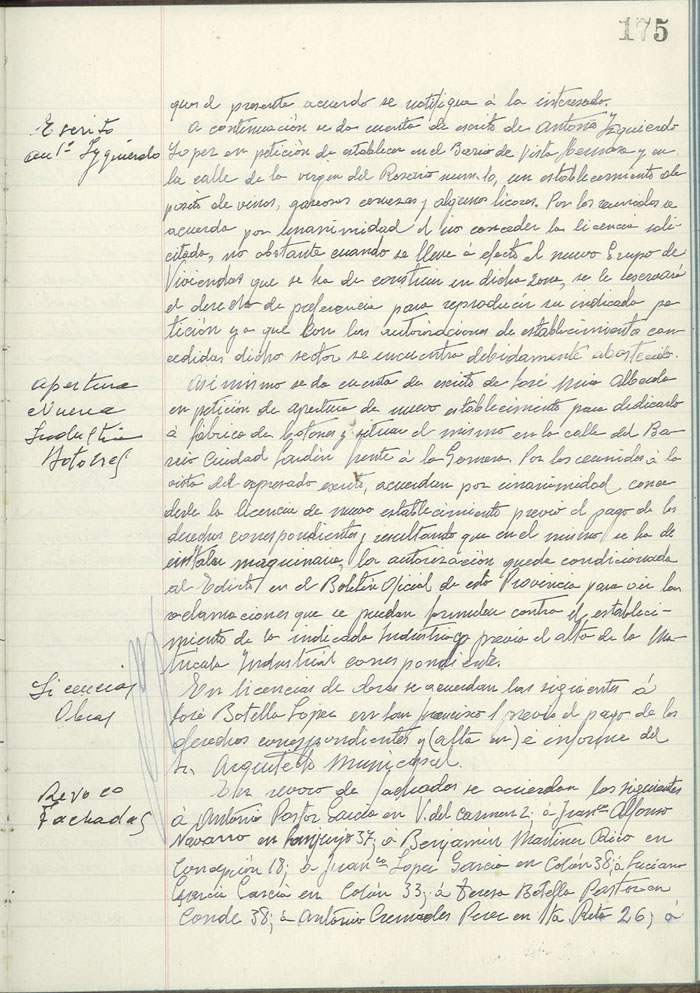 175
que el presente acuerdo se notifique á la interesado.
Escrito
Antº Izquierdo
A continuación se da cuenta de escrito de Antonio Izquierdo
Lopez en petición de establecer en el Barrio de Vista Hermosa y en
la calle de la virgen del Rosario num. 10, un establecimiento de-
posito de vinos, gaseosas cervezas y algunos licores. Por los reunidos se
acuerda por unanimidad el no conceder la licencia soli-
citada, no obstante cuando se lleve á efecto el nuevo Grupo de
Viviendas que se ha de construir en dicha zona, se le reservará
el derecho de preferencia para reproducir su indicada pe-
tición ya que con las autorizaciones de establecimiento con-
cedidas dicho sector se encuentra debidamente abastecido.
Apertura
Nueva
Industria
Botones
Asimismo se da cuenta de escrito de José Mira Albeola
en petición de apertura de nuevo establecimiento para dedicarlo
á fábrica de botones y situar el mismo en la calle del Ba-
rrio Ciudad Jardín frente á la Gomera. Por los reunidos á la
vista del expresado escrito, acuerdan por unanimidad conce-
derle la licencia de nuevo establecimiento previo el pago de los
derechos correspondientes y resultando que en el mismo se ha de
instalar maquinaria, la autorización queda condicionada
al Edicto en el Boletín Oficial de esta Provincia para oir las
reclamaciones que se puedan formular contra el estableci-
miento de la indicada Industria y previo el alta de la Ma-
tricula Industrial correspondiente.
Licencias
Obras
En licencias de obras se acuerdan las siguientes á
José Botella Lopez en San Francisco 1 previo el pago de los
derechos correspondientes y (alta en) é informe del
Sr. Arquitecto Municipal.
Revoco
Fachadas
En revoco de fachadas se acuerdan las siguientes
á Antonio Pastor Garcia en V. del Carmen 2; á Juanco Alfonso
Navarro en 37; á Benjamín Martinez Rico en
Concepción 18; á Juanco Lopez Garcia en Colón 38; á Luciano
Garcia Garcia en Colón 33; á Teresa Botella Pastor en
Conde 38; á Antonio Cremades Perez en Sta. Rita 26; á